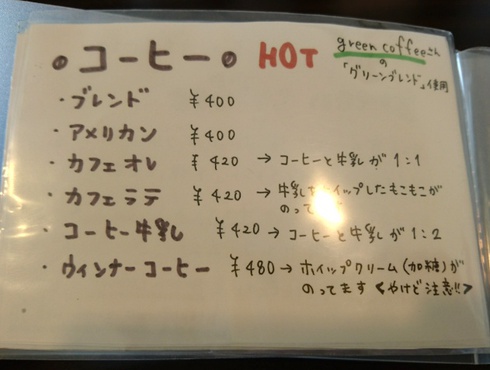 コーヒー HOT
green coffeeさん
の
「グリーンブレンド」使用
・ブレンド ¥400
・アメリカン ¥400
・カフェオレ ¥420 → コーヒーと牛乳が1:1
・カフェラテ ¥420 → 牛乳をホイップしたもこもこが
のって
・コーヒー牛乳 ¥420 → コーヒーと牛乳が1:2
・ウィンナーコーヒー ¥480 → ホイップクリーム(加糖)が
のってます <やけど注意!!>